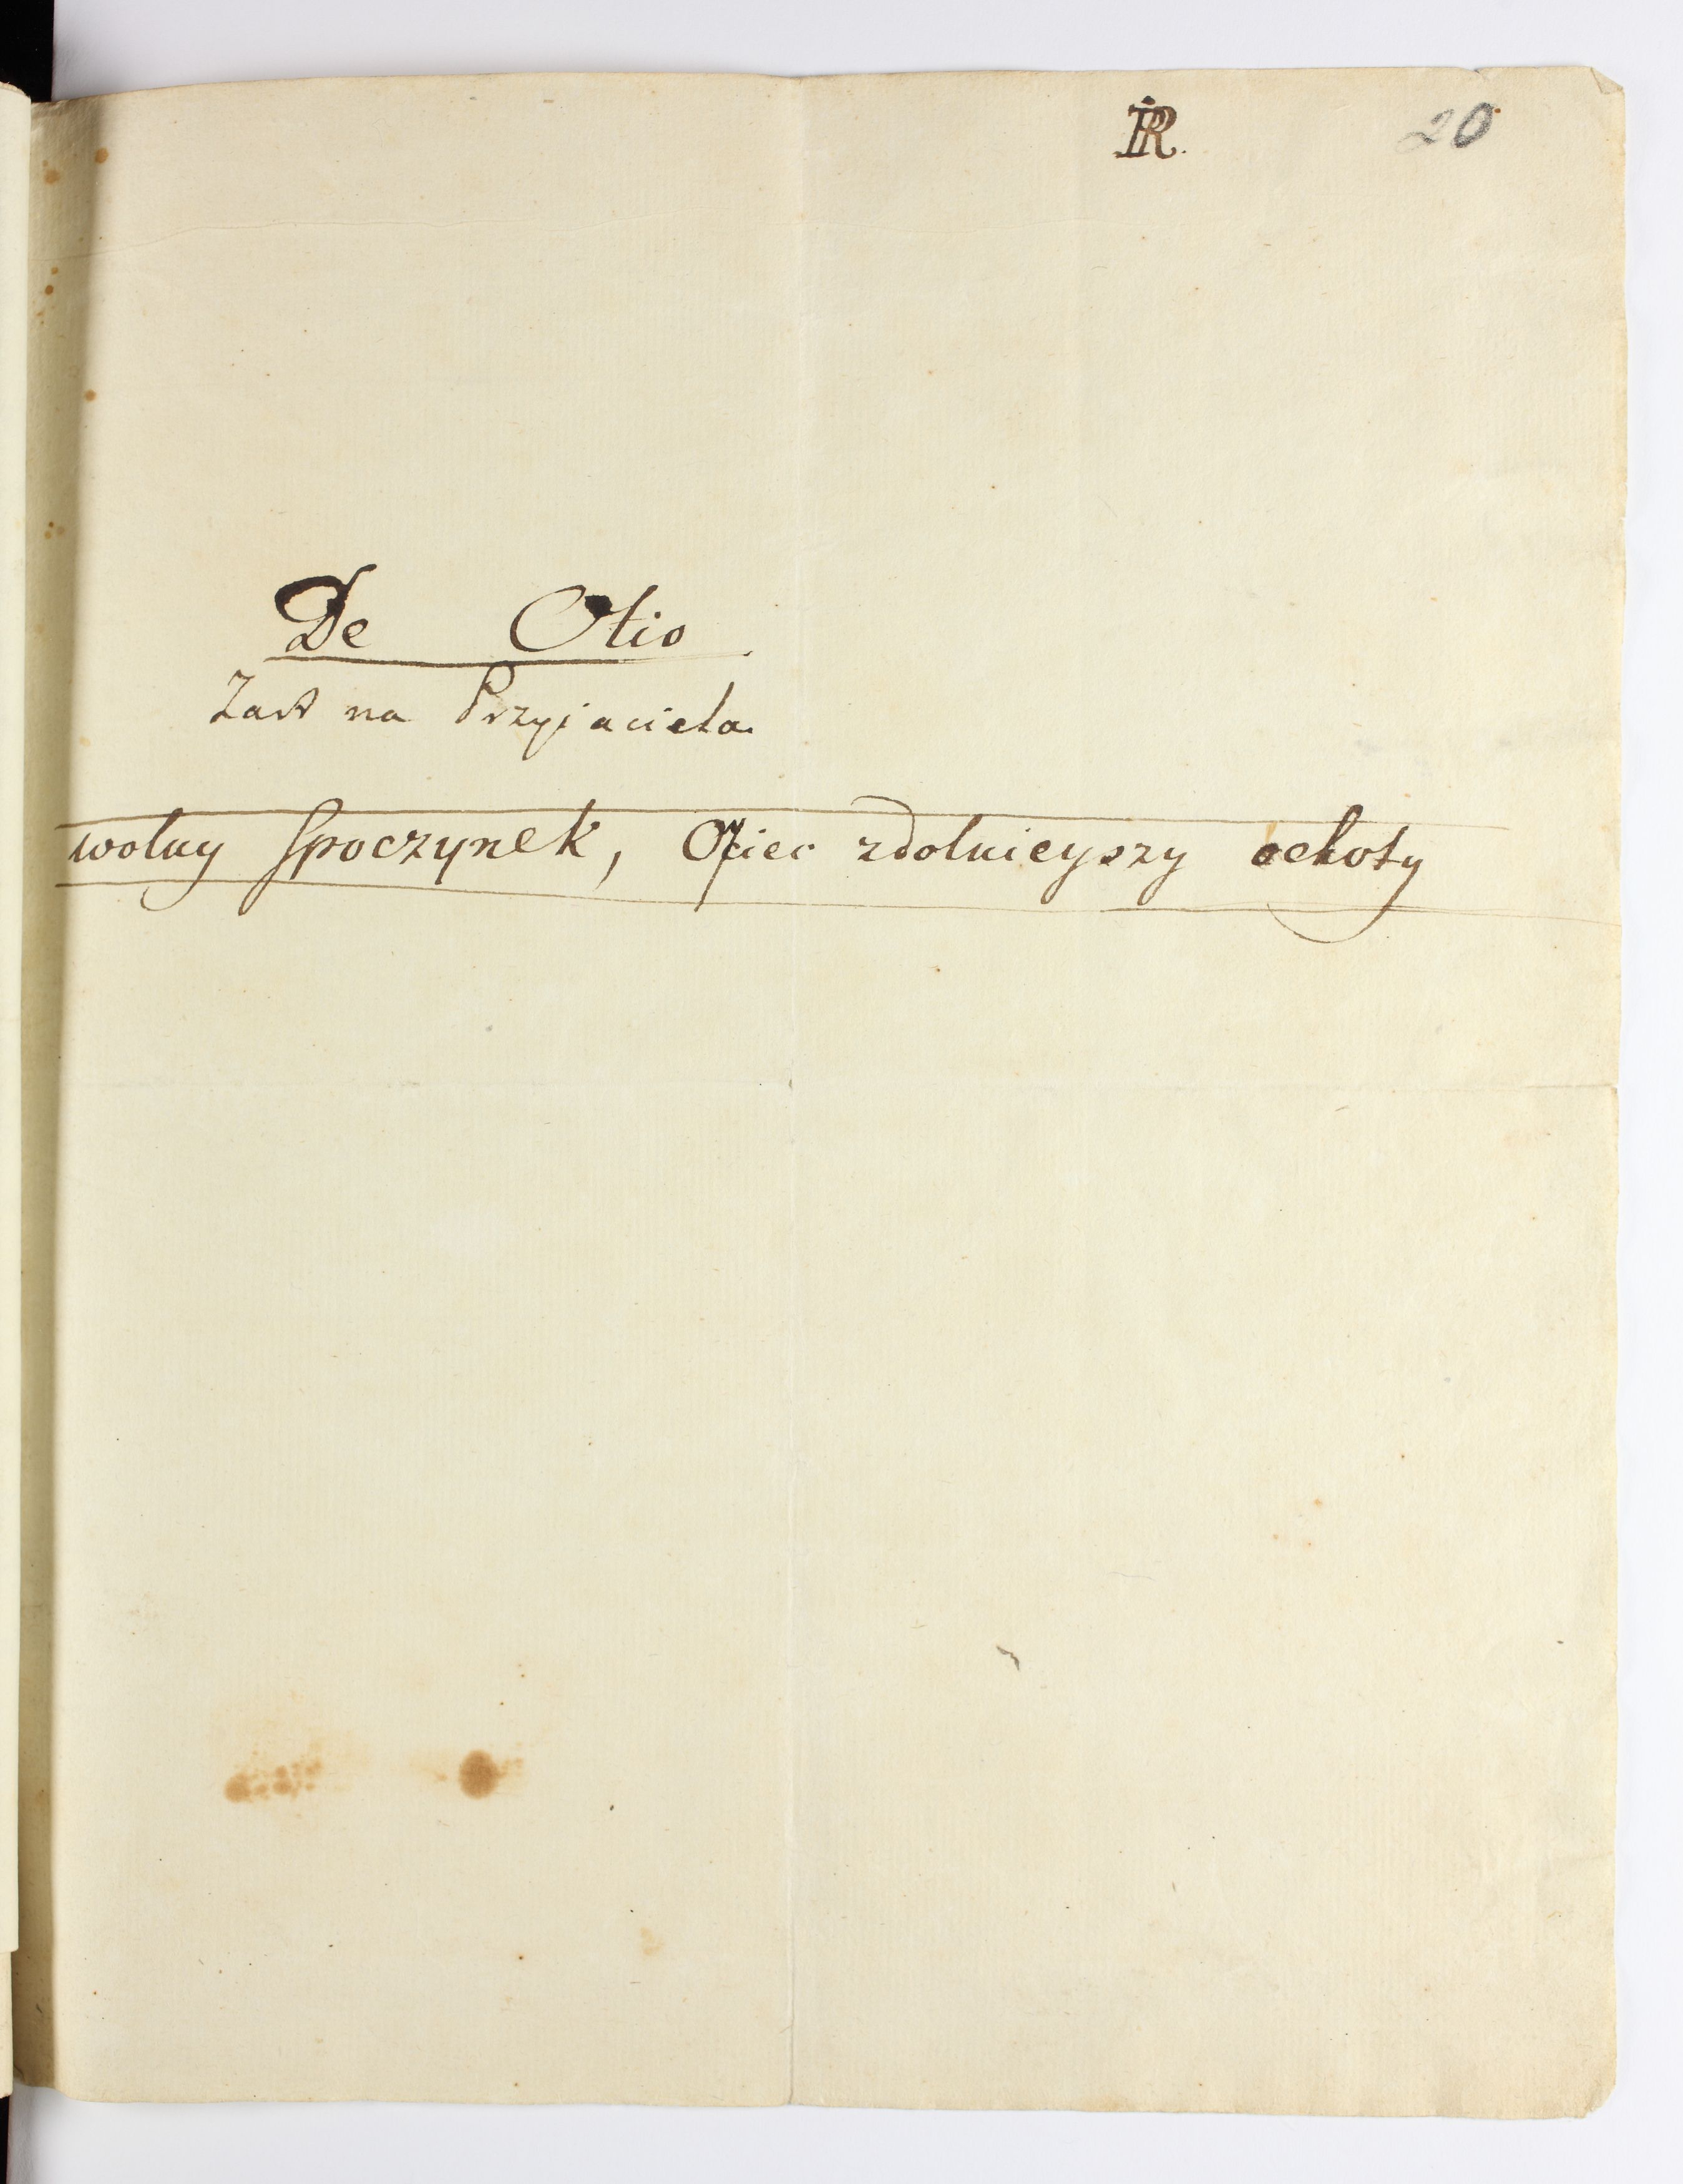 IR. 20
De Otio.
Zart na Przyjaciela.
wolny spoczynek, Ociec zdolnieyszy ochoty